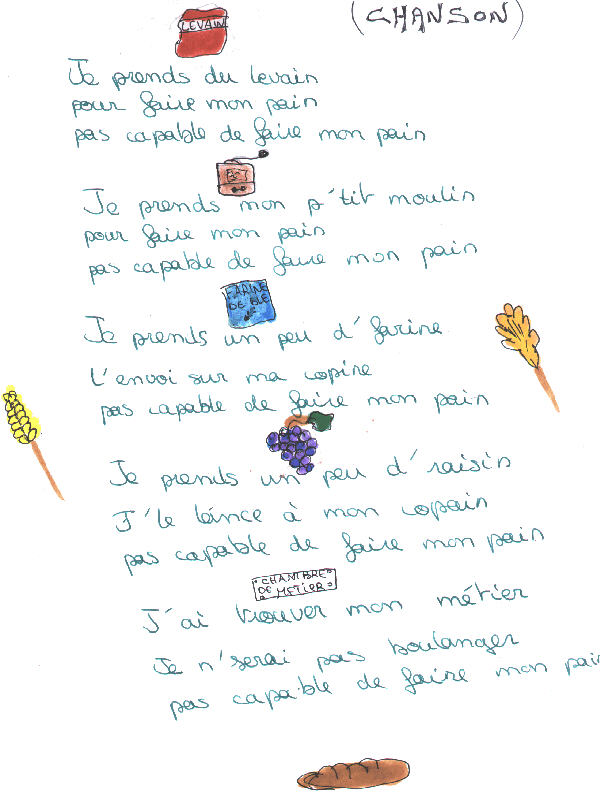 (CHANSON)
LEVAIN
Je prends du levain
pour faire mon pain
pas capable de faire mon pain
Je prends mon p'tit moulin
pour faire mon pain
pas capable de faire mon pain
FARINE
DE BLE
Je prends un peu d'farine
L'envoi sur ma copine
pas capable de faire mon pain
Je prends un peu d'raisin
J'le lance à mon copain
pas capable de faire mon pain
CHAMBRE
DE METIER
J'ai trouver mon métier
Je n'serai pas boulanger
pas capable de faire mon pain